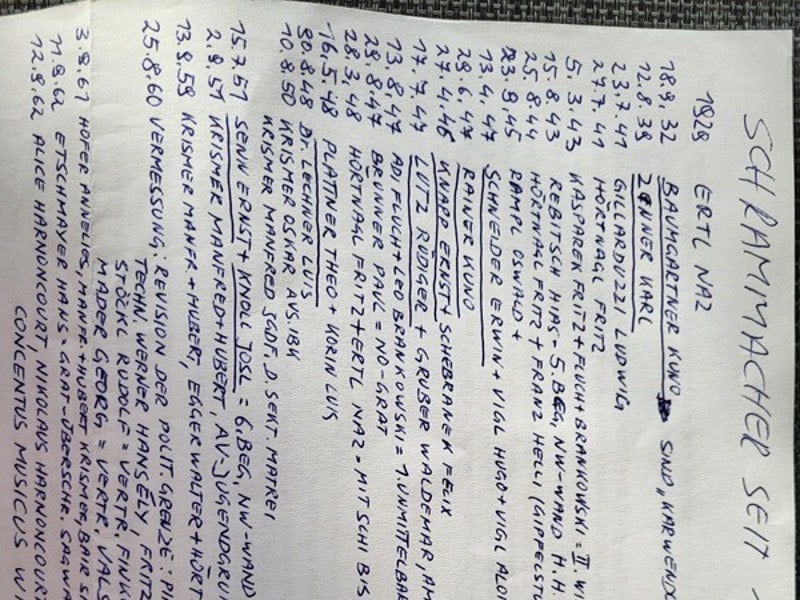 SCHRAMMACHER SEIT
1928 ERTL NAZ
18.9.32 BAUMGARTNER KUNO SIND „KARWENDE
12.8.39 KARL
23.7.41 GILLARDUZZI LUDWIG
27.7.41 HÖRTNAGL FRITZ
5.3.43 KASPAREK FRITZ + FLUCH + BRANKOWSKI = II. WI
15.8.43 REBITSCH HIAS - 5. BEG, NW-WAND H.H.
25.8.44 HÖRTNAGL FRITZ + FRANZ HELLI (GIPFELSTU
23.9.45 RAMPL OSWALD +
13.4.47 SCHNEIDER ERWIN + VIGL HUGO + VIGL ALOI
29.6.47 RAINER KUNO
27.4.46 KNAPP ERNST + SCHEBRANEK FELIX
17.7.47 LUTZ RÜDIGER + GRUBER WALDEMAR, AM
13.8.47 AD. FLUCH + LEO BRANKOWSKI = 1. UNMITELBAR
29.8.47 BRUNNER PAUL = NO-GRAT
28.3.48 HÖRTNAGL FRITZ + ERTL NAZ = MIT SCHI BIS
16.5.48 PLATNER THEO + KORIN LUIS
30.8.48 Dr. LECHNER LUIS
10.8.50 KRISMER OSKAR AVS. IBK
KRISMER MANFRED JGDF. D. SEKT. MATREI
15.7.51 SENN ERNST + KNOLL JOSL = 6. BEG, NW-WAND
2.9.51 KRISMER MANFRED + HUBERT, AV-JUGENDGRU
13.9.59 KRISMER MANFR + HUBERT, EGGER WALTER + HÖRT
25.8.60 VERMESSUNG: REVISION DER POLIT. GRENZE: PI
TECHN. WERNER HANSÉLY, FRITZ
STÖCKL RUDOLF = VERTR. FINK
MADER GEORG, = VERTR. VALS
3.9.61 HOFER ANNELIES, MANFR. + HUBERT KRISMER, BAIR S
11.8.62 ETSCHMAYER HANS = GRAT-ÜBERSCHR. SAGWA
12.8.62 ALICE HARNONCOURT, NIKOLAUS HARNONCOURT
CONCENTUS MUSICUS WI